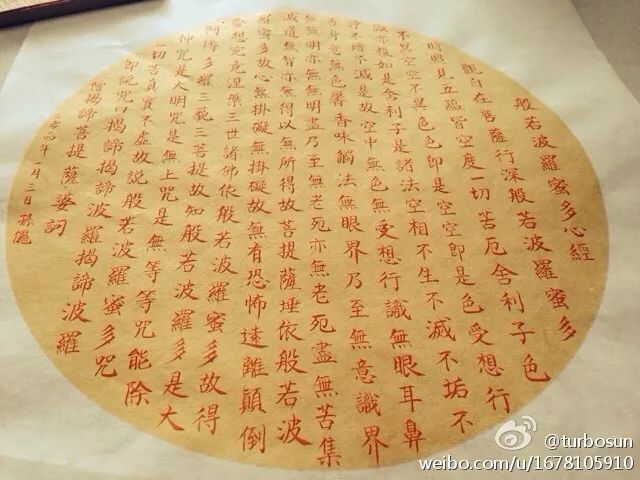 般若波羅蜜多心經
觀自在菩薩行深般若波羅蜜多
時照見五蘊皆空度一切苦厄舍利子色
不異空空不異色色即是空空即是色受想行
識亦復如是舍利子是諸法空相不生不滅不垢不
淨不增不減是故空中無色無受想行識無眼耳鼻
舌身意無色聲香味觸法無眼界乃至無意識界
無無明亦無無明盡乃至無老死亦無老死盡無苦集
滅道無智亦無得以無所得故菩提薩埵依般若波
羅蜜多故心無掛礙無掛礙故無有恐怖遠離顛倒
夢想究竟涅槃三世諸佛依般若波羅蜜多故得
阿耨多羅三藐三菩提故知般若波羅蜜多是大
神咒是大明咒是無上咒是無等等咒能除
一切苦真實不虛故說般若波羅蜜多咒
即說咒曰揭諦揭諦波羅揭諦波羅
僧揭諦菩提薩婆訶
二〇一四年一月三日孫儷
@turbosun
weibo.com/u/1678105910